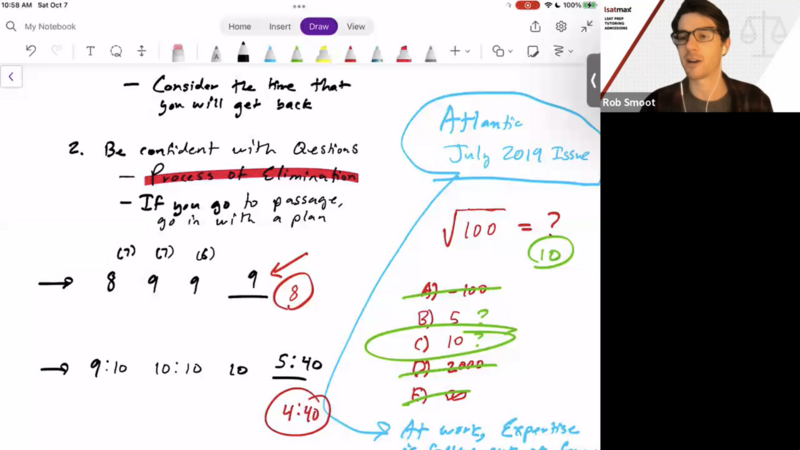 10:58 AM Sat Oct 7
100%
My Notebook
Home Insert Draw View
— Consider the time that
you will get back
2. Be confident with Questions
— Process of Elimination
— If you go to passage,
go in with a plan
(7) (7) (6)
→ 8 9 9 9
8
→ 9:10 10:10 10 5:40
4:40
Atlantic
July 2019 Issue
√100 = ?
10
A) -100
B) 5 ?
C) 10 ?
D) 2000
E) ∞
→ At work, Expertise
is
lsatmax
LSAT PREP
TUTORING
ADMISSIONS
Rob Smoot